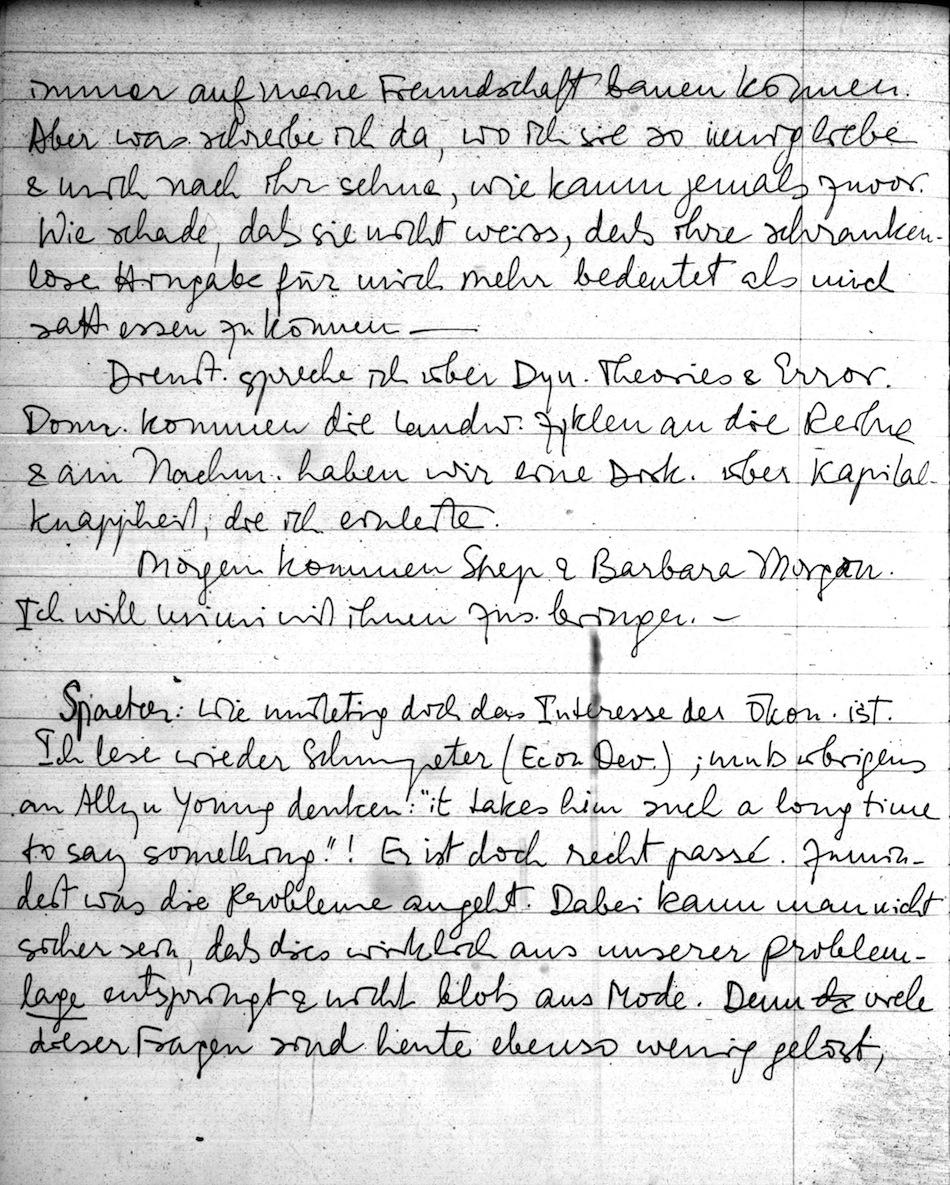 immer auf meine Freundschaft bauen können.
Aber was schreibe ich da, wo ich sie so innig liebe
& mich nach ihr sehne, wie kaum jemals zuvor.
Wie schade, dass sie nicht weiss, dass ihre schranken-
lose Hingabe für mich mehr bedeutet als mich
satt essen zu können —
Dienst. spreche ich über Dyn. Theories & Error.
Donn. kommen die landw. Zyklen an die Reihe
& am Nachm. haben wir eine Disk. über Kapital-
knappheit, die ich einleite.
Morgen kommen Shep & Barbara Morgan.
Ich will mit ihnen zus. bringen. —
Spaeter: Wie unstetig doch das Interesse der Ökon. ist.
Ich lese wieder Schumpeter (Econ Dev.); muss übrigens
an Allyn Young denken: "it takes him such a long time
to say something."! Er ist doch recht passé. Zumin-
dest was die Probleme angeht. Dabei kann man nicht
sicher sein, dass dies wirklich aus unserer Problem-
lage entspringt & nicht bloss aus Mode. Denn viele
dieser Fragen sind heute ebenso wenig gelöst,